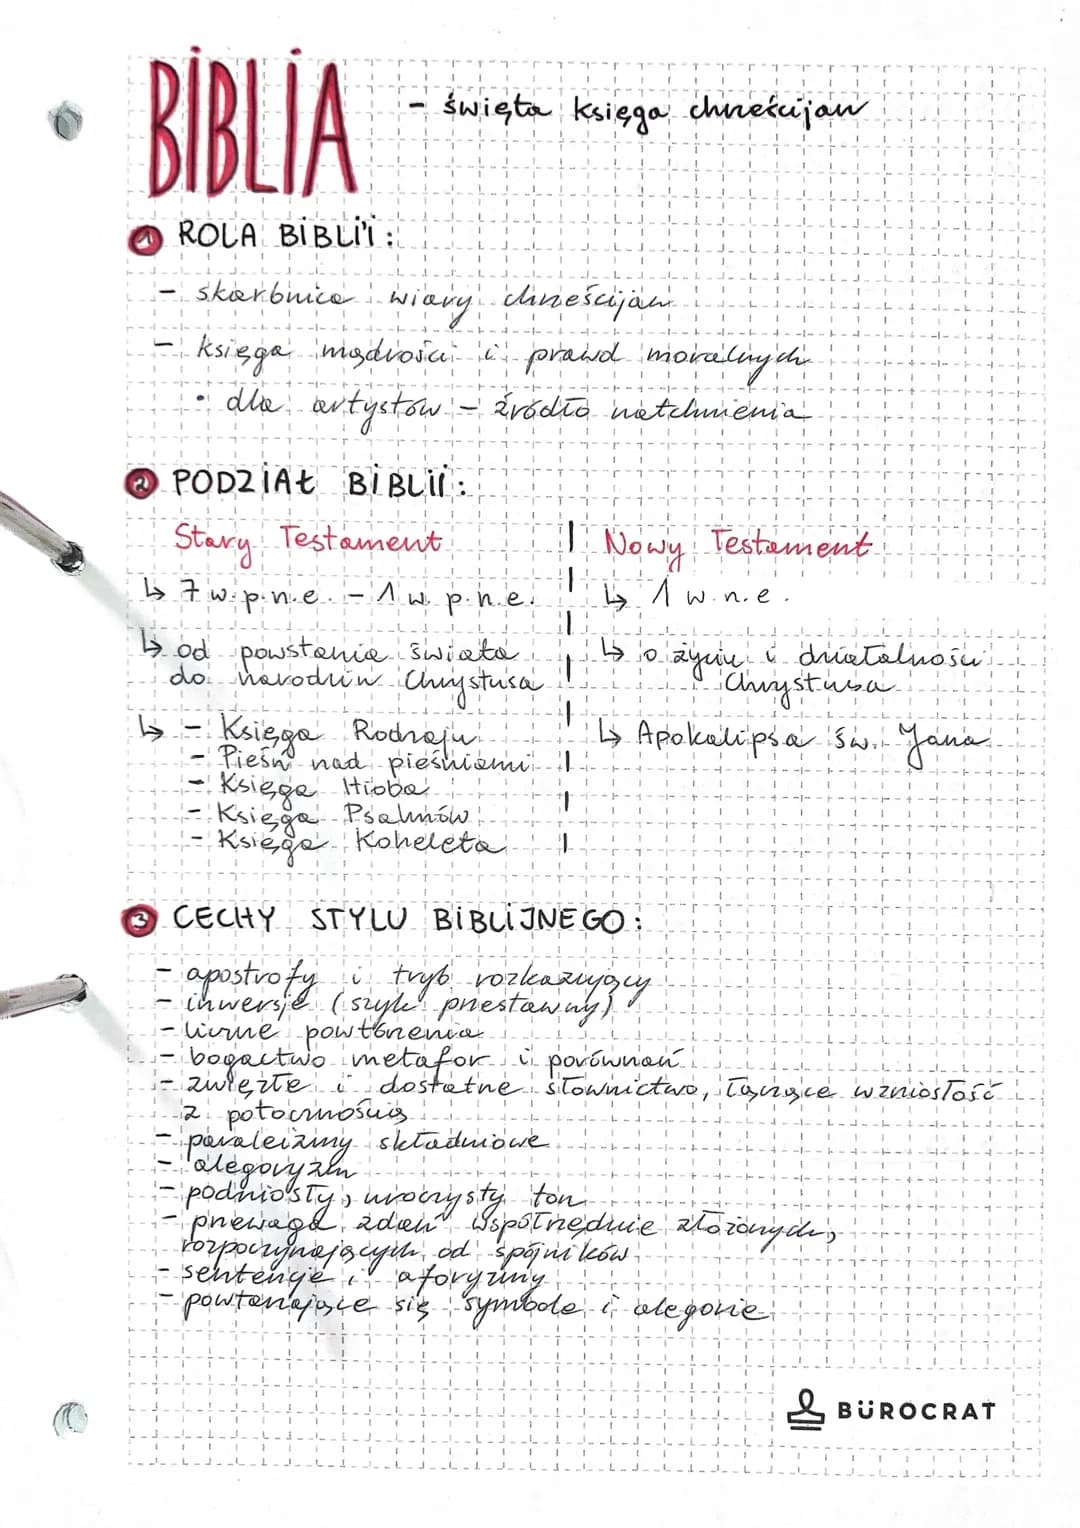 BIBLIA - święta księga chrześcijan
1 ROLA BIBLII:
- skarbnica wiary chrześcijan
- księga mądrości i prawd moralnych
• dla artystów - źródło natchnienia
2 PODZIAŁ BIBLII:
Stary Testament
↳ 7 w. p.n.e. - 1 w. p.n.e.
↳ od powstania świata
do narodzin Chrystusa
↳ - Księga Rodzaju
- Pieśń nad pieśniami
- Księga Hioba
- Księga Psalmów
- Księga Koheleta
Nowy Testament
↳ 1 w. n.e.
↳ o życiu i działalności
Chrystusa
↳ Apokalipsa św. Jana
3 CECHY STYLU BIBLIJNEGO:
- apostrofy i tryb rozkazujący
- inwersje (szyk przestawny)
- liczne powtórzenia
- bogactwo metafor i porównań
- zwięzłe i dostatne słownictwo, łączące wzniosłość
z potocznością
- paraleizmy składniowe
- alegoryzm
- podniosły, uroczysty ton
- przewaga zdań współrzędnie złożonych,
rozpoczynających od spójników
- sentencje i aforyzmy
- powtarzające się symbole i alegorie
BÜROCRAT